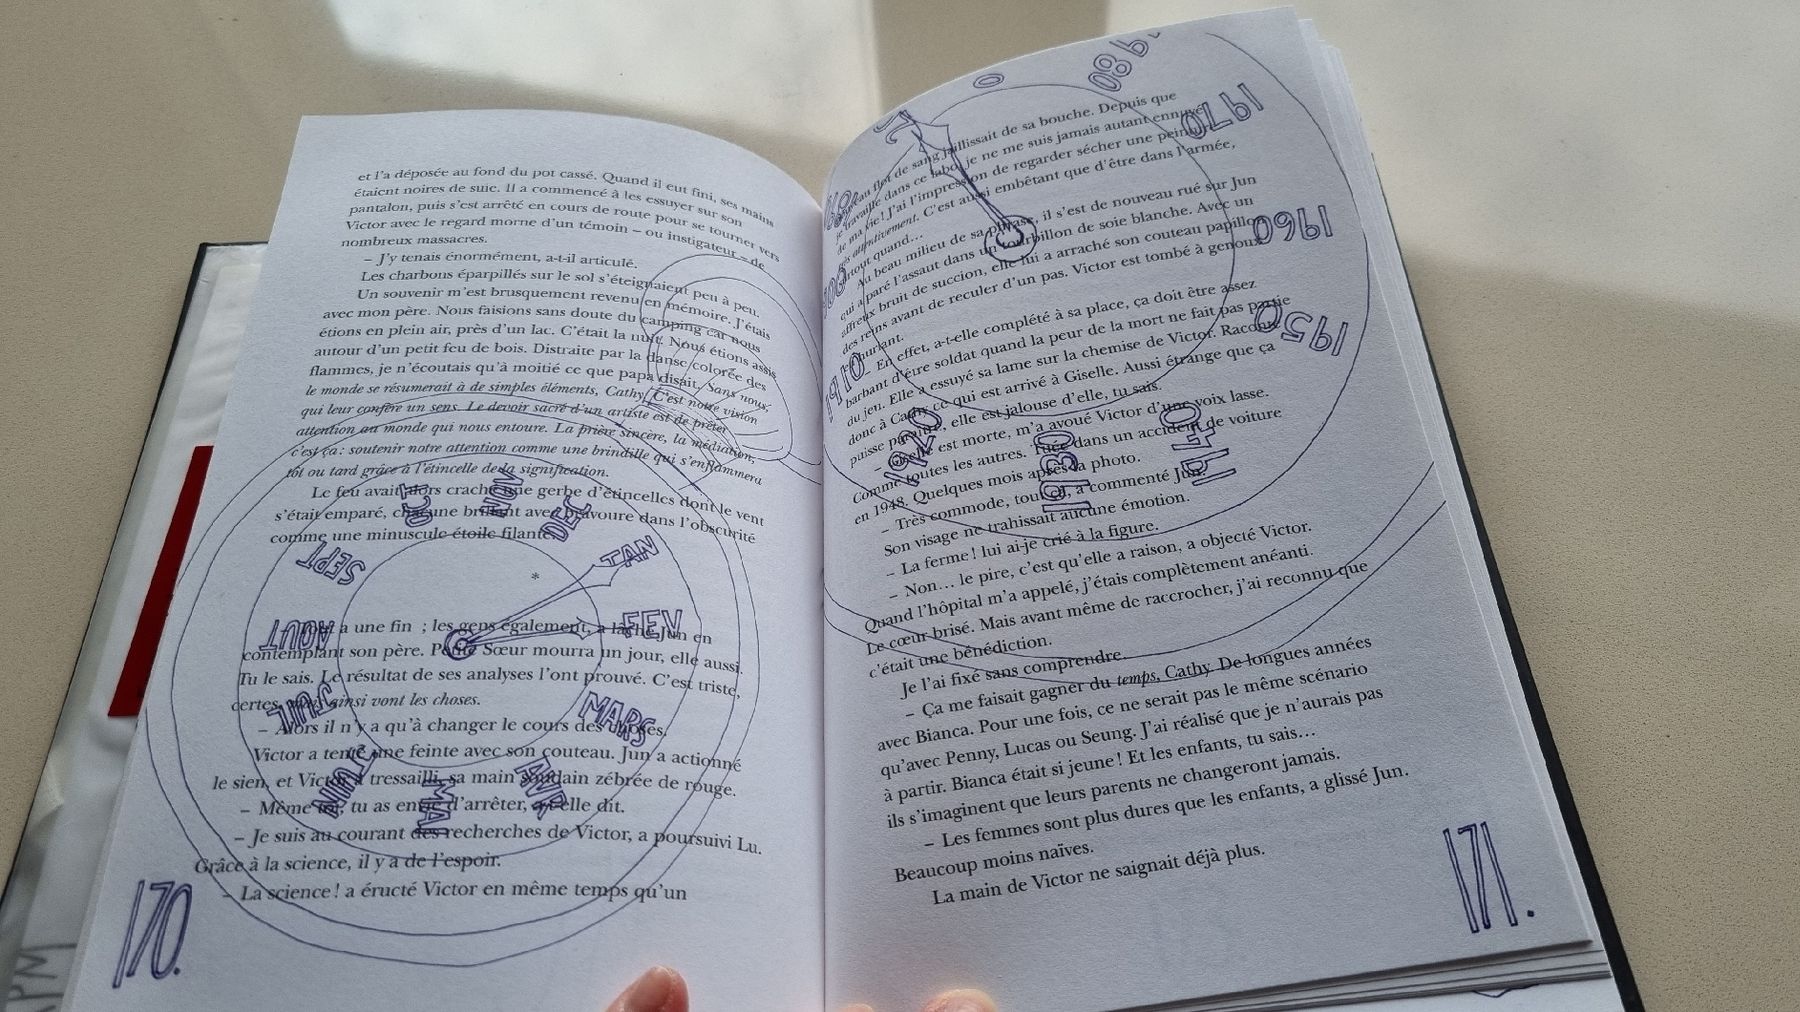 et l'a déposée au fond du pot cassé. Quand il eut fini, ses mains
étaient noires de suie. Il a commencé à les essuyer sur son
pantalon, puis s'est arrêté en cours de route pour se tourner vers
Victor avec le regard morne d'un témoin – ou instigateur – de
nombreux massacres.
– J'y tenais énormément, a-t-il articulé.
Les charbons éparpillés sur le sol s'éteignaient peu à peu.
Un souvenir m'est brusquement revenu en mémoire. J'étais
avec mon père. Nous faisions sans doute du camping car nous
étions en plein air, près d'un lac. C'était la nuit. Nous étions assis
autour d'un petit feu de bois. Distraite par la danse colorée des
flammes, je n'écoutais qu'à moitié ce que papa disait. Sans nous,
le monde se résumerait à de simples éléments, Cathy. C'est notre vision
qui leur confère un sens. Le devoir sacré d'un artiste est de prêter
attention au monde qui nous entoure. La prière sincère, la médiation,
c'est ça : soutenir notre attention comme une brindille qui s'enflammera
tôt ou tard grâce à l'étincelle de la signification.
Le feu avait alors craché une gerbe d'étincelles dont le vent
s'était emparé, chacune brillant avec bravoure dans l'obscurité
comme une minuscule étoile filante.
*
Tout a une fin ; les gens également, a lâché Jun en
contemplant son père. Petite Sœur mourra un jour, elle aussi.
Tu le sais. Le résultat de ses analyses l'ont prouvé. C'est triste,
certes, mais ainsi vont les choses.
– Alors il n'y a qu'à changer le cours des choses.
Victor a tenté une feinte avec son couteau. Jun a actionné
le sien, et Victor a tressailli, sa main soudain zébrée de rouge.
– Même toi, tu as envie d'arrêter, a-t-elle dit.
– Je suis au courant des recherches de Victor, a poursuivi Lu.
Grâce à la science, il y a de l'espoir.
– La science ! a éructé Victor en même temps qu'un
OCT
NOV
DEC
JAN
FEV
MARS
AVR
MAI
JUIN
JUIL
AOUT
SEPT
170.
nouveau flot de sang jaillissait de sa bouche. Depuis que
je travaille dans ce labo, je ne me suis jamais autant ennuyé
de ma vie ! J'ai l'impression de regarder sécher une peinture
très attentivement. C'est aussi embêtant que d'être dans l'armée,
surtout quand…
Au beau milieu de sa phrase, il s'est de nouveau rué sur Jun
qui a paré l'assaut dans un tourbillon de soie blanche. Avec un
affreux bruit de succion, elle lui a arraché son couteau papillon
des reins avant de reculer d'un pas. Victor est tombé à genoux
en hurlant.
– En effet, a-t-elle complété à sa place, ça doit être assez
barbant d'être soldat quand la peur de la mort ne fait pas partie
du jeu. Elle a essuyé sa lame sur la chemise de Victor. Raconte
donc à Cathy ce qui est arrivé à Giselle. Aussi étrange que ça
puisse paraître, elle est jalouse d'elle, tu sais.
– Giselle est morte, m'a avoué Victor d'une voix lasse.
Comme toutes les autres. Tuée dans un accident de voiture
en 1948. Quelques mois après la photo.
– Très commode, tout ça, a commenté Jun.
Son visage ne trahissait aucune émotion.
– La ferme ! lui ai-je crié à la figure.
– Non… le pire, c'est qu'elle a raison, a objecté Victor.
Quand l'hôpital m'a appelé, j'étais complètement anéanti.
Le cœur brisé. Mais avant même de raccrocher, j'ai reconnu que
c'était une bénédiction.
Je l'ai fixé sans comprendre.
– Ça me faisait gagner du temps, Cathy. De longues années
avec Bianca. Pour une fois, ce ne serait pas le même scénario
qu'avec Penny, Lucas ou Seung. J'ai réalisé que je n'aurais pas
à partir. Bianca était si jeune ! Et les enfants, tu sais…
ils s'imaginent que leurs parents ne changeront jamais.
– Les femmes sont plus dures que les enfants, a glissé Jun.
Beaucoup moins naïves.
La main de Victor ne saignait déjà plus.
1910
1920
1930
1940
1950
1960
1970
171.